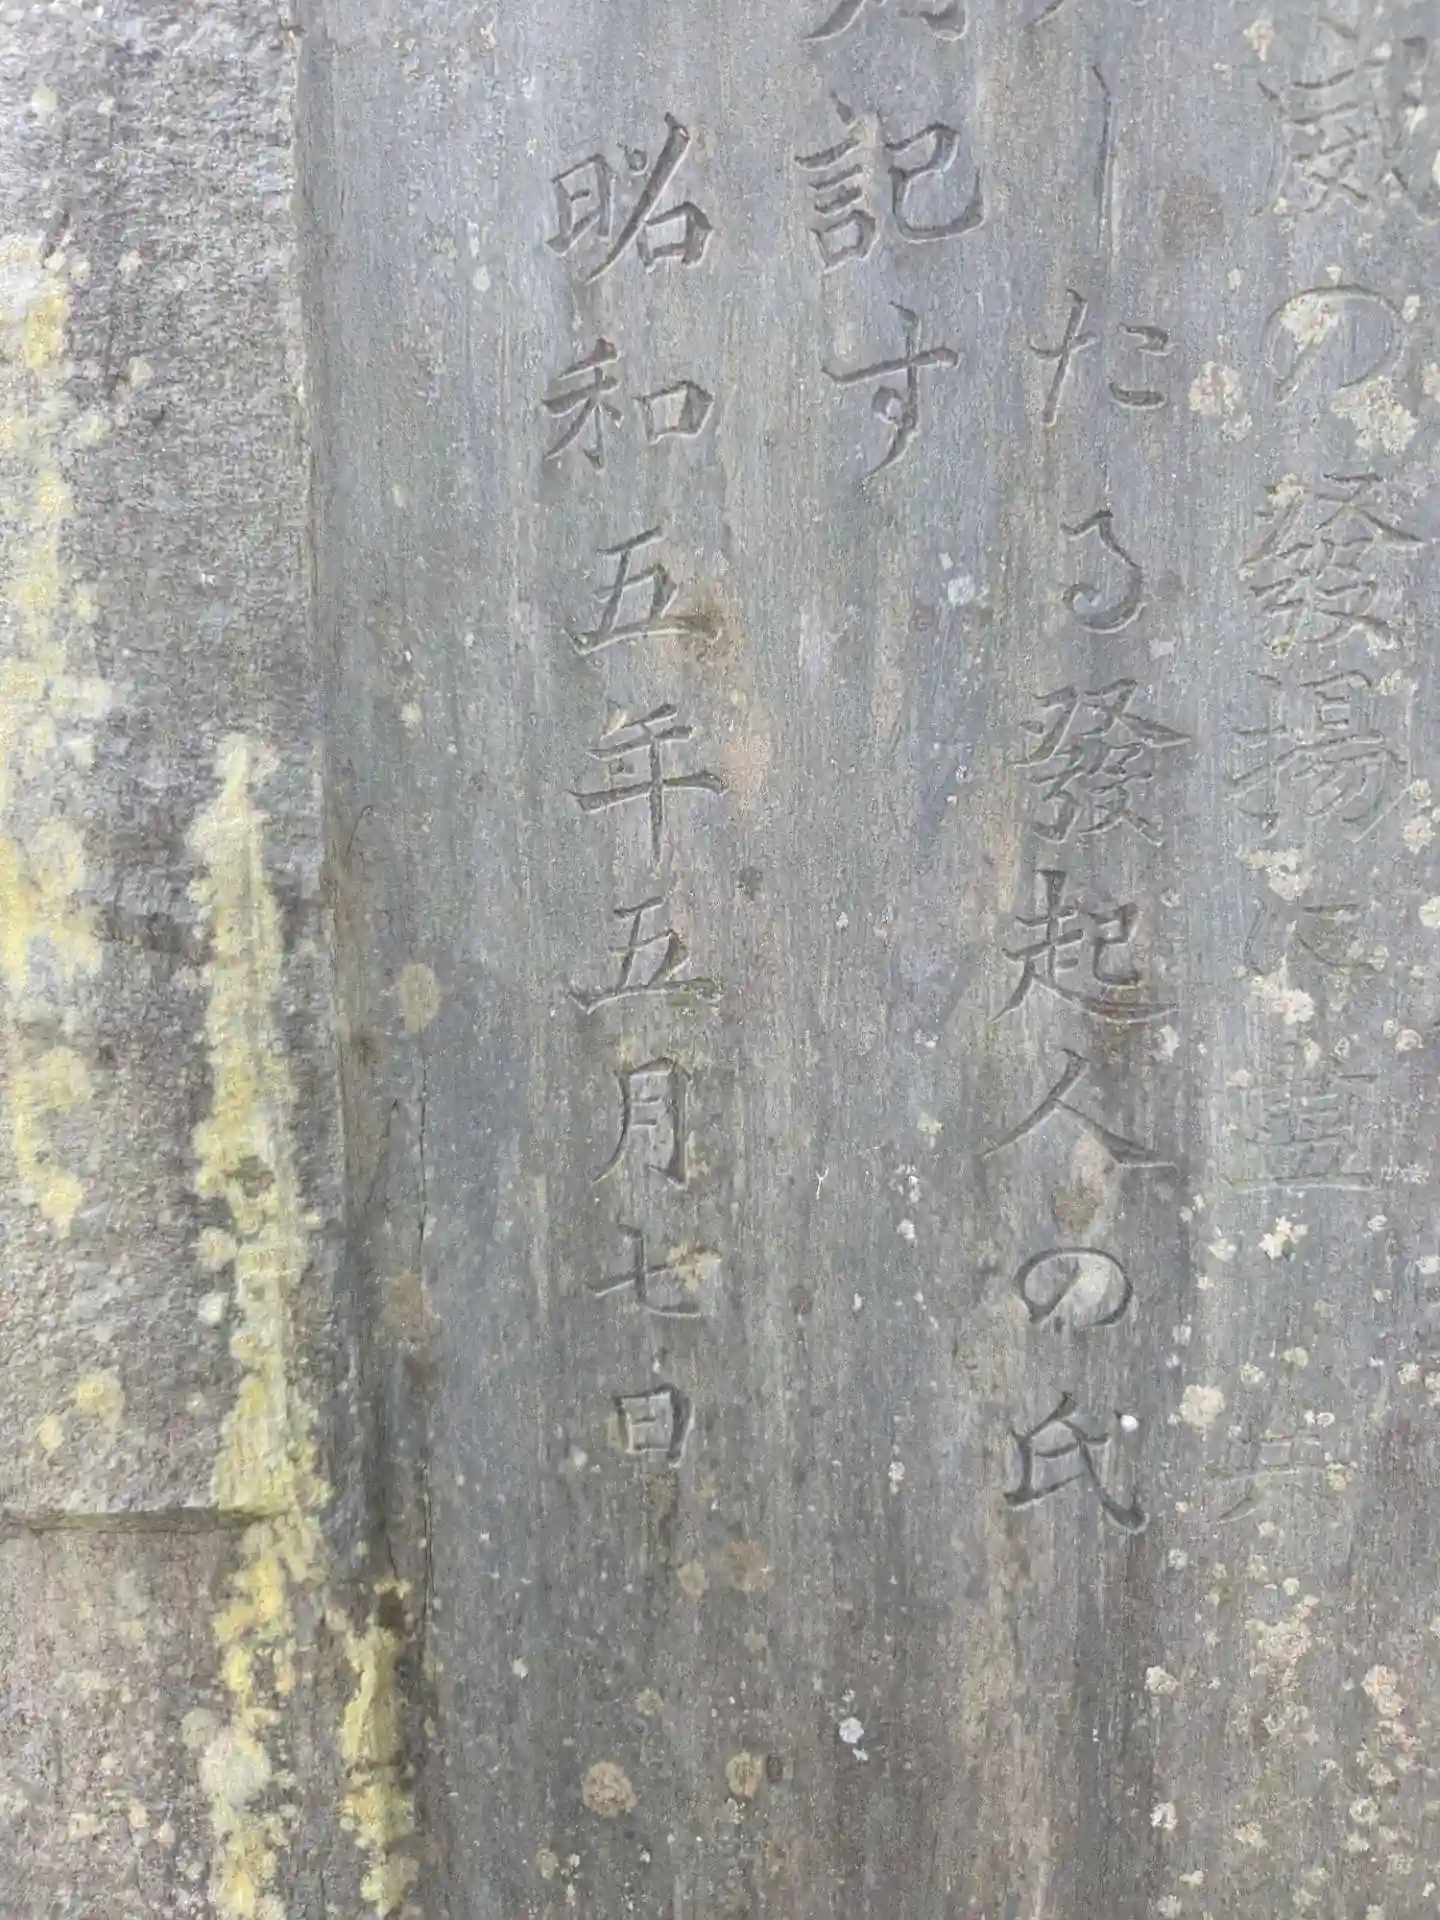 威の發揚に
したる發起人の氏
記す
昭和五年五月七日